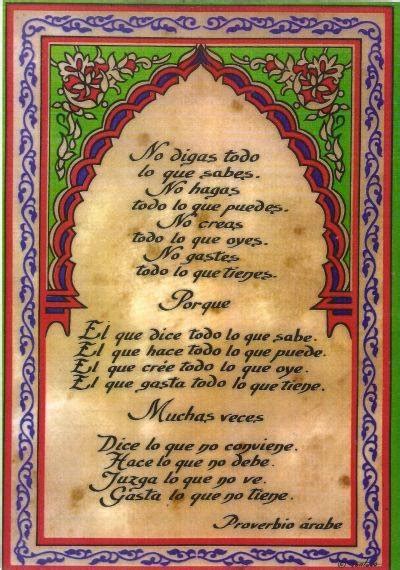 No digas todo
lo que sabes.
No hagas
todo lo que puedes.
No creas
todo lo que oyes.
No gastes
todo lo que tienes.
Porque
El que dice todo lo que sabe.
El que hace todo lo que puede.
El que crée todo lo que oye.
El que gasta todo lo que tiene.
Muchas veces
Dice lo que no conviene.
Hace lo que no debe.
Juzga lo que no ve.
Gasta lo que no tiene.
Proverbio árabe